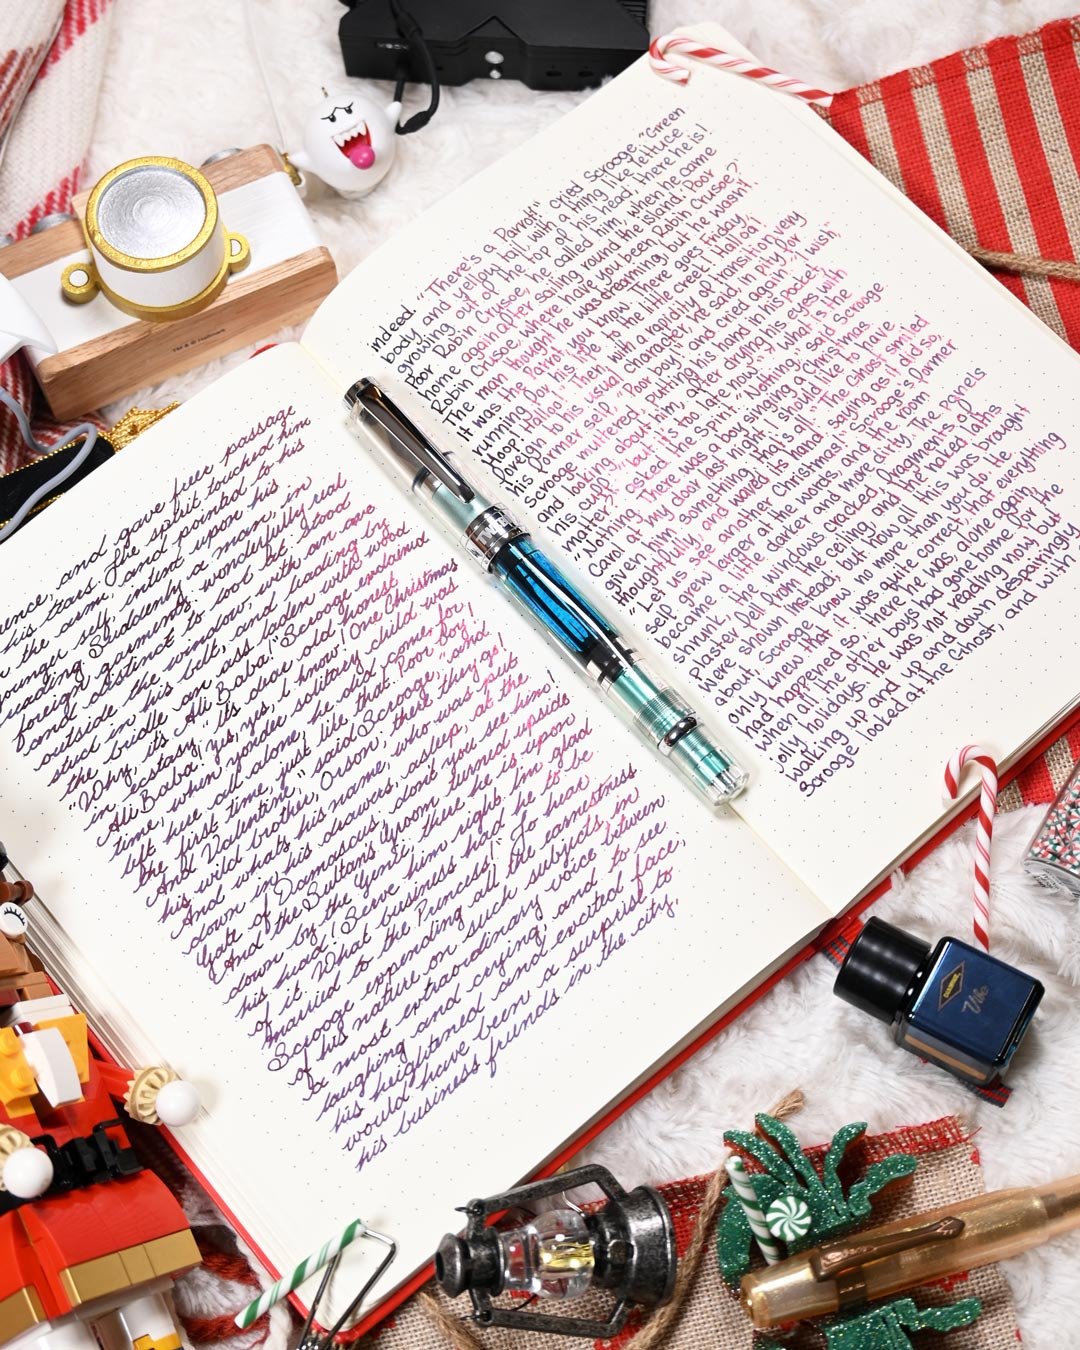 and gave free passage
his tears. The spirit touched him
the arm, and pointed to his
younger self, intent upon his
reading. Suddenly a man, in
foreign garments, wonderfully real
and distinct to look at: stood
outside the window, with an axe
stuck in his belt, and leading by
the bridle an ass laden with wood
"Why, it's Ali Baba!" Scrooge exclaimed
in ecstasy, "it's dear old honest
Ali Baba! yes, yes, I know! One Christmas
time, when yonder solitary child was
left here all alone, he did come, for
the first time, just like that. Poor boy!
And Valentine," said Scrooge, "and
his wild brother, Orson, there they go!
And what's his name, who was put
down in his drawers, asleep, at the
Gate of Damascus, don't you see him!
And the Sultan's Groom turned upside
down by the Genii, there he is upon
his head! Serve him right, I'm glad
of it. What business had he to be
married to the Princess!" To hear
Scrooge expending all the earnestness
of his nature on such subjects, in
a most extraordinary voice between
laughing and crying; and to see
his heightened and excited face;
would have been a surprise to
his business friends in the city,
indeed. "There's a Parrot!" cried Scrooge, "Green
body and yellow tail, with a thing like lettuce
growing out of the top of his head, there he is!
Poor Robin Crusoe, he called him, when he came
home again after sailing round the island. 'Poor
Robin Crusoe, where have you been Robin Crusoe?'
The man thought he was dreaming, but he wasn't.
It was the Parrot, you know. There goes Friday,
running for his life to the little creek! Halloa!
Hoop! Halloo!" Then, with a rapidity of transition very
foreign to his usual character, he said, in pity for
his former self, "Poor boy!" and cried again. "I wish,"
Scrooge muttered, putting his hand in his pocket
and looking about him, after drying his eyes with
his cuff, "but it's too late now." "What is the
matter?" asked the Spirit. "Nothing," said Scrooge
"Nothing. There was a boy singing a Christmas
Carol at my door last night. I should like to have
given him something, that's all." The Ghost smiled
thoughtfully, and waved its hand, saying as it did so,
"Let us see another Christmas!" Scrooge's former
self grew larger at the words, and the room
became a little darker and more dirty. The panels
shrunk, the windows cracked, fragments of
plaster fell from the ceiling, and the naked laths
were shown instead, but how all this was brought
about, Scrooge knew no more than you do. He
only knew that it was quite correct, that everything
had happened so, there he was alone again,
when all the other boys had gone home for the
jolly holidays. He was not reading now, but
walking up and down despairingly
Scrooge looked at the Ghost, and with
XBOX
Vibe